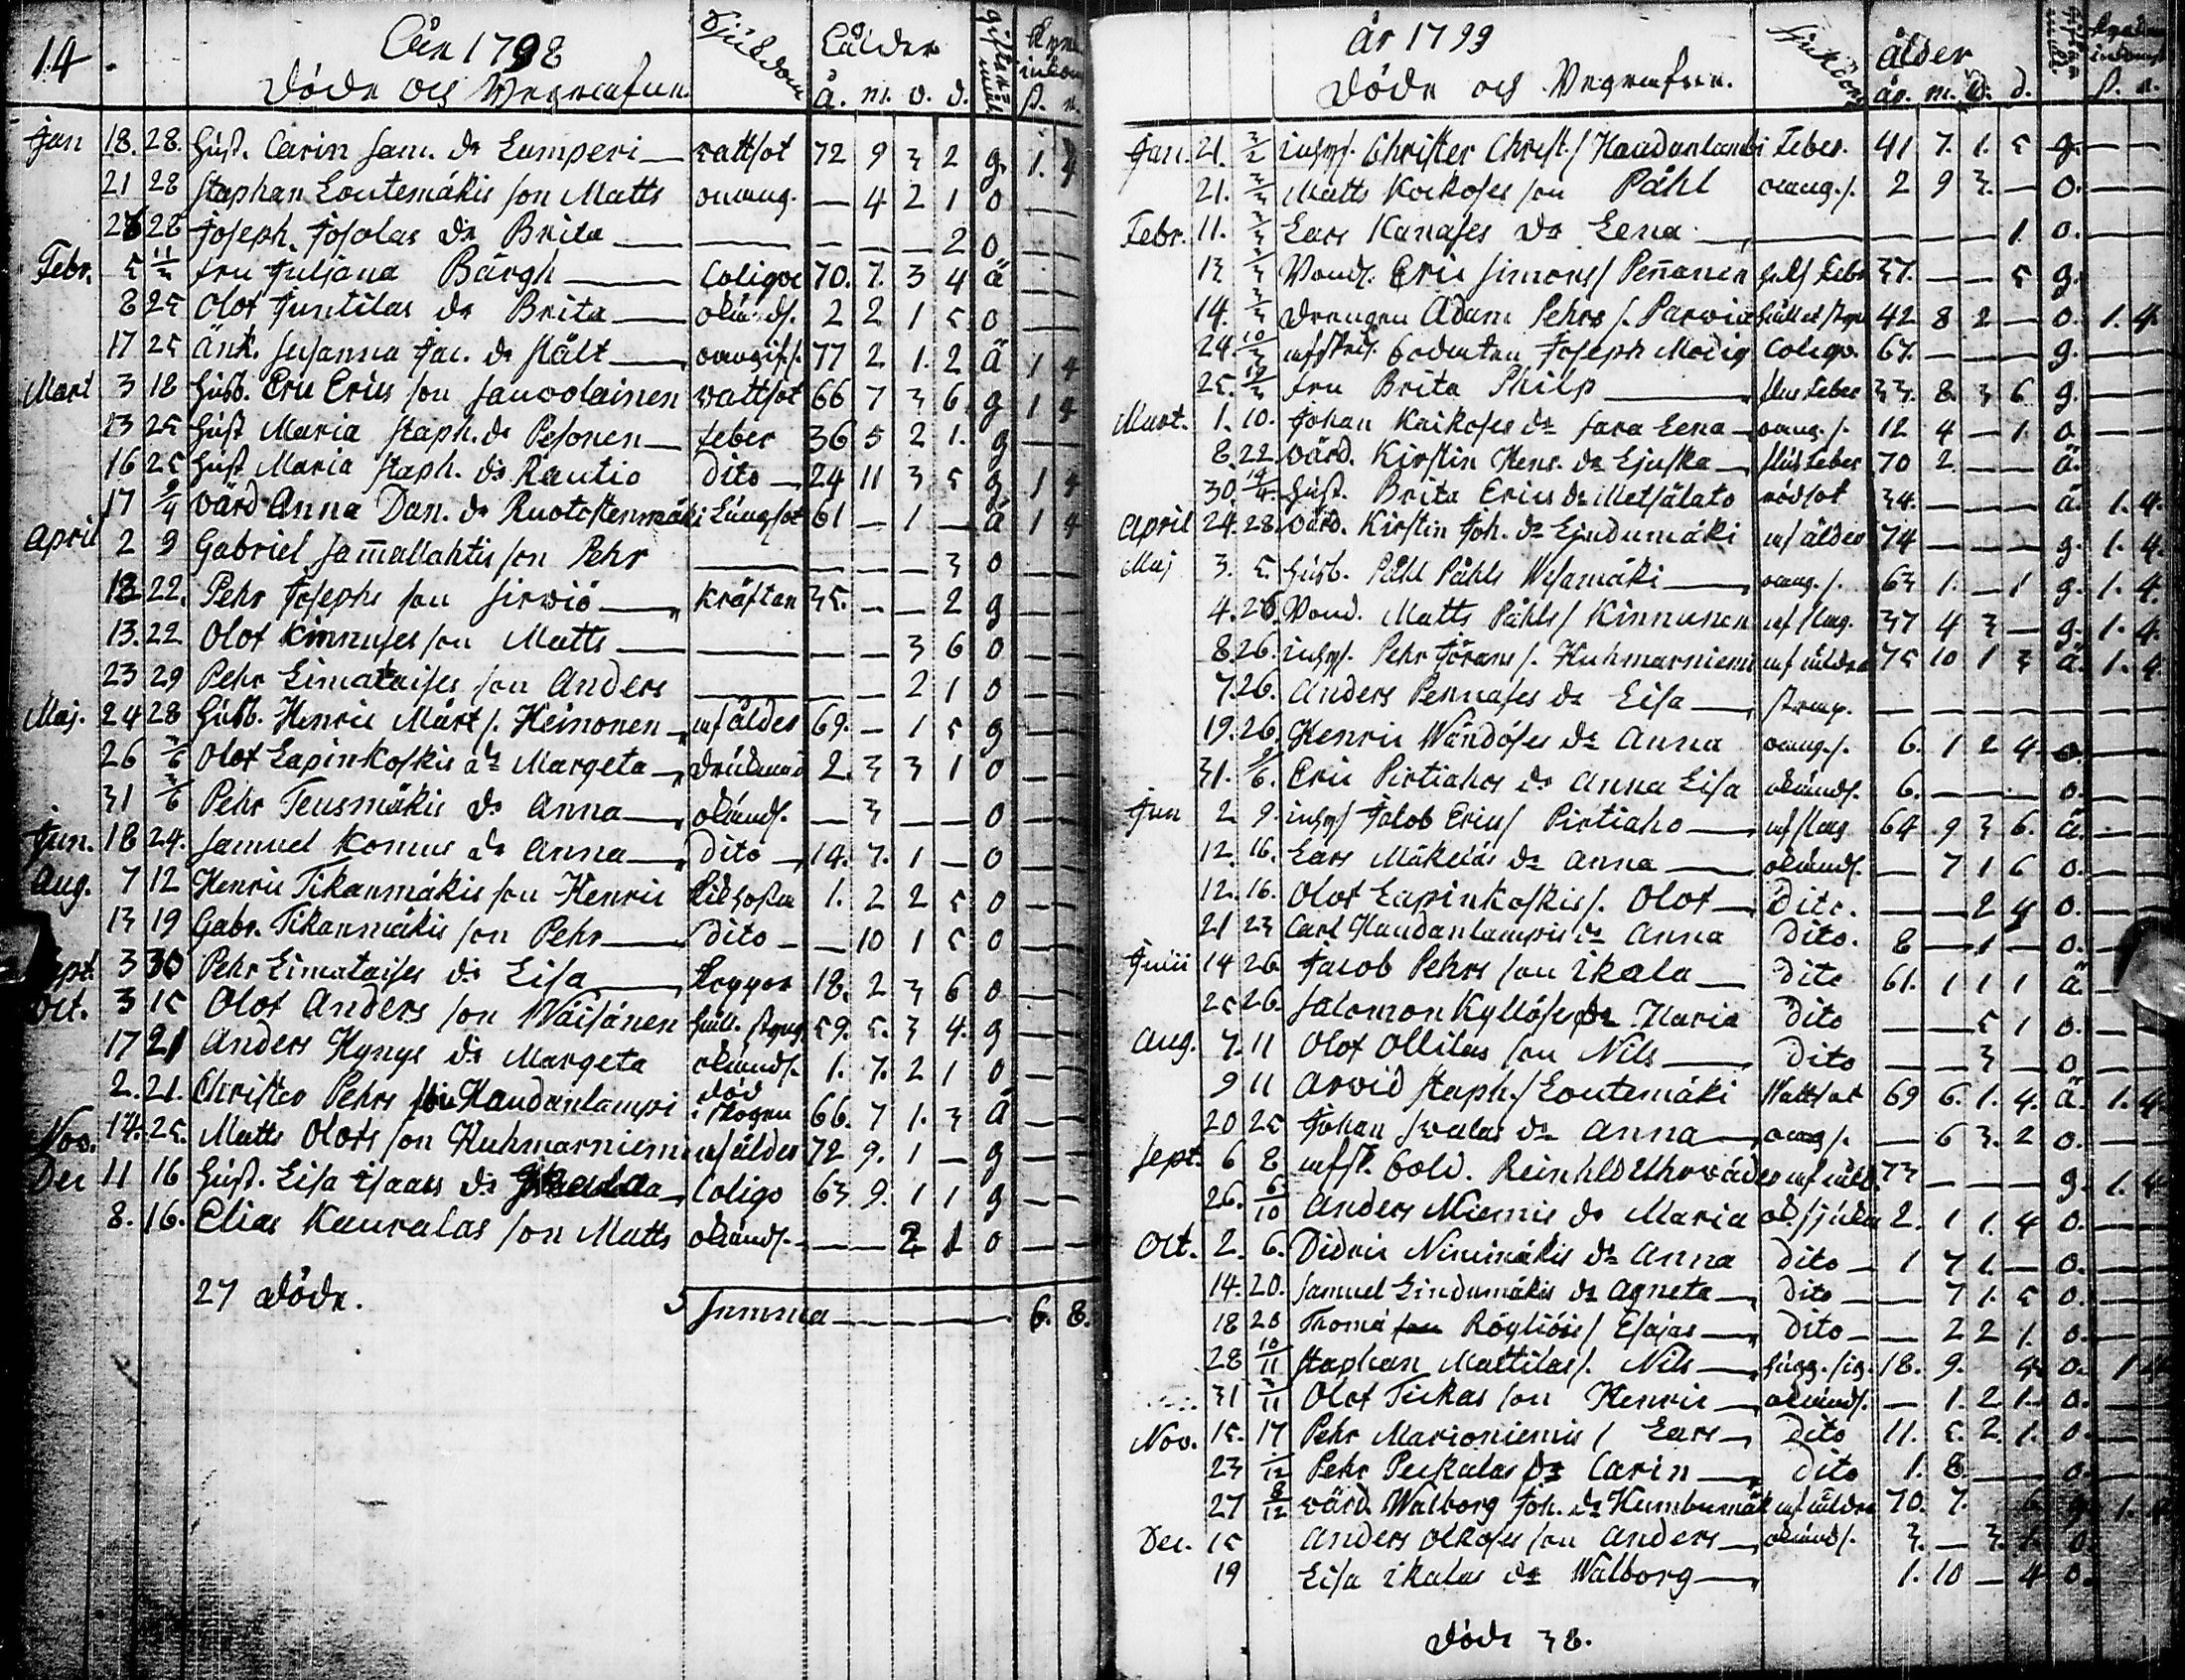 14.
År 1798
Döde och Begrafne.
Sjukdom
Ålder
å. m. v. d.
Jan 18. 28. Hust. Carin Sam. dr Lumperi — wattsot 72 9 3 2 g. 1. 4
21 28 Staphan Loutemäkis son Matts onäng. — 4 2 1 0 —
26 28 Joseph Josolas dr Brita — — — — — 2 0 —
Febr. 5 11/3 fru Juljana Bärgh — Colique 70. 7. 3 4 ä —
8 25 Olof Juntilas dr Brita — okänds. 2 2 1 5 0 —
17 25 Änk. Susanna Jac. dr Stålt — 77 2. 1. 2 ä 1 4
Mart 3 18 Husb. Eric Erics son Sauvolainen wattsot 66 7 3 6 g 1 4
13 25 Hust Maria Staph. dr Pesonen — feber 36 5 2 1. g —
16 25 Hust Maria Staph. dr Rautio dito — 24 11 3 5 g 1 4
17 9/4 wärd Anna Dan. dr Ruotostenmäki Lungsot 61 — 1 — ä 1 4
April 2 9 Gabriel Sam̄allahtis son Pehr — — — — 3 0 —
18 22. Pehr Josephs son Sirwiö — kräftan 35. — — 2 g —
13. 22 Olof Kinnuses son Matts — — — — 3 6 0 —
23 29 Pehr Limataises son Anders — — — 2 1 0 —
Maj. 24 28 Husb. Henric Mårt s. Heinonen — af ålder 69. — 1 5 g —
26 3/6 Olof Lapinkoskis dr Margeta — 2. 3 3 1 0 —
31 3/6 Pehr Teusmäkis dr Anna — okänds. — 3 — — 0 —
Jun. 18 24. Samuel Komus dr Anna — dito — 14. 7. 1 — 0 —
Aug. 7 12 Henric Tikanmäkis son Henric Kikhosta 1. 2 2 5 0 —
13 19 Gabr. Tikanmäkis son Pehr — dito — — 10 1 5 0 —
Sept. 3 30 Pehr Limataises dr Lisa — Koppor 18. 2 3 6 0 —
Oct. 3 15 Olof Anders son Wäisänen håll. styng 59. 5. 3 4. g —
17 21 Anders Kynys dr Margeta okänds. 1. 7. 2 1 0 —
2. 21. Christer Pehrs son Haudanlampi död i skogen 66. 7 1. 3 ä —
Nov. 14. 25. Matts Olofs son Kuhmarniemi af ålder 72 9. 1 — g —
Dec 11 16 Hust. Lisa Isaacs dr — Coligo 63. 9. 1 1 g —
8. 16. Elias Kauralas son Matts okänds. — — 2 1 0 —
27 döde.
Summa — 6. 8.
År 1799
Döde och Begrafne.
Sjukdom
Ålder
år. m. v. d.
Jan. 21. 3/2 inhys. Christer Christ. s Haudanlambi Feber. 41 7. 1. 5 g. —
21. 3/2 Matts Kockoses son Påhl onäng s. 2 9 3. — 0. —
Febr. 11. 3/3 Lars Kanases dr Lena — — — — 1. 0. —
13 3/3 Bond. Eric Simons s Pen̄anen feber 37. — — 5 g. —
14. 3/3 Drengen Adam Pehrs s. Parwia håll styn 42 8 2 — 0. 1. 4.
24. 10/3 afsked. Soldaten Joseph Modig Colique. 67. — — — g. —
25. fru Brita Philp — feber 33. 8. 3 6 g. —
Mart. 1. 10. Johan Kaikoses dr Sara Lena — onäng s. 12 4 — 1 0. —
8. 22. wärd. Kirstin Henr. dr Ljuska — feber 70 2 — — ä. —
30. 14/4. Hust. Brita Erics dr Metsälato rödsot 34. — — — ä. 1. 4.
April 24. 28. wärd. Kirstin Joh. dr Lindumäki af ålder 74 — — — g. 1. 4.
Maj 3. 5. Husb. Påhl Påhls Wesamäki — onäng. s. 63 1. — 1 g. 1. 4.
4. 26. Bond. Matts Påhls s Kinnunen af slag. 37 4 3 — g. 1. 4.
8. 26. inhys. Pehr Görans s. Kuhmarniemi af ålder 75 10 1 3 ä. 1. 4.
7. 26. Anders Pennases dr Lisa — — — — —
19. 26. Henric Wändöses dr Anna onäng. s. 6. 1 2 4 0. —
31. 9/6. Eric Pirtiahos dr Anna Lisa okänds. 6. — — — 0. —
Jun 2 9. inhys Jakob Erics s Pirtiaho — af slag 64 9 3 6. ä. —
12. 16. Lars Mäkeläs dr Anna — okänds. — 7 1 6 0. —
12. 16. Olof Lapinkoskis s. Olof — Dito. — — 2 4 0. —
21 23 Carl Haudanlampis dr Anna Dito. 8 — 1 — 0. —
Julii 14 26 Jacob Pehrs son Ikala — Dito 61. 1 1 1 ä. —
25 26. Salomon Kyllöses dr Maria Dito — — 5 1 0. —
Aug. 7. 11 Olof Ollilas son Nils — Dito — — 3 — 0 —
9 11 Arwid Staph. s Loutemäki Wattsot 69 6. 1. 4. ä. 1. 4.
20 25 Johan Swalas dr Anna — onäng s. — 6 3. 2 0. —
Sept. 6 8 afsk. Sold. Reinhold af åld. 73 — — — g. 1. 4
26. 6/10 Anders Niemis dr Maria ok. sjuka 2. 1 1. 4 0. —
Oct. 2. 6. Didric Niinimäkis dr Anna Dito — 1 7 1. — 0. —
14. 20. Samuel Lindumäkis dr Agneta — Dito — — 7 1. 5 0. —
18 20 Thoma Röygliöis s Esajas — Dito — — 2 2 1. 0. —
28 10/11 Staphan Mattilas s. Nils — 18. 9. 4. 0. 1 4
31 3/11 Olof Tickas son Henric — okänds. — 1. 2 1. 0. —
Nov. 15. 17 Pehr Marioniemis s Lars — Dito 11. 5. 2. 1. 0. —
23 Pehr Peckalas dr Carin — Dito 1. 8. — — 0. —
27 8/12 wärd. Walborg Joh. dr Humbumäk af ålder 70. 7. 6 g. 1. 4
Dec. 15 Anders Olkoses son Anders — okänds. 3. — 3. 1. 0.
19 Lisa Ikalas dr Walborg — 1. 10 — 4 0.
Döde 38.